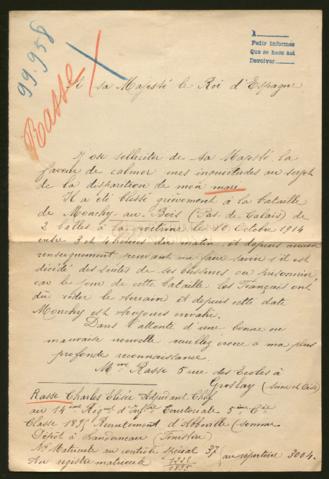 99.958
Rasse
A
Pedir informes
Que se hace así
Devolver
A sa Majesté le Roi d'Espagne
J'ose solliciter de sa Majesté la
faveur de calmer mes inquiétudes au sujet
de la disparition de mon mari
Il a été blessé grièvement à la bataille
de Monchy-au-Bois (Pas de Calais) de
2 balles à la poitrine le 10 Octobre 1914
entre 3 et 4 heures du matin et depuis aucun
renseignement pouvant me faire savoir s'il est
décédé des suites de ses blessures ou prisonnier
car le jour de cette bataille les Français ont
dû céder le terrain et depuis cette date
Monchy est toujours envahi.
Dans l'attente d'une bonne ou
mauvaise nouvelle veuillez croire à ma plus
profonde reconnaissance
Mme Rasse 5 rue des Ecoles à
Groslay (Seine et Oise)
Rasse Charles Elisée Adjudant Chef
au 14ème Régt d'Inftie Territoriale 5ème Cie
Classe 1895 Recrutement d'Abbeville (Somme)
Dépôt à (Finistère)
No Matricule au contrôle spécial 37 au répertoire 3004.
Au registre matricule 1895